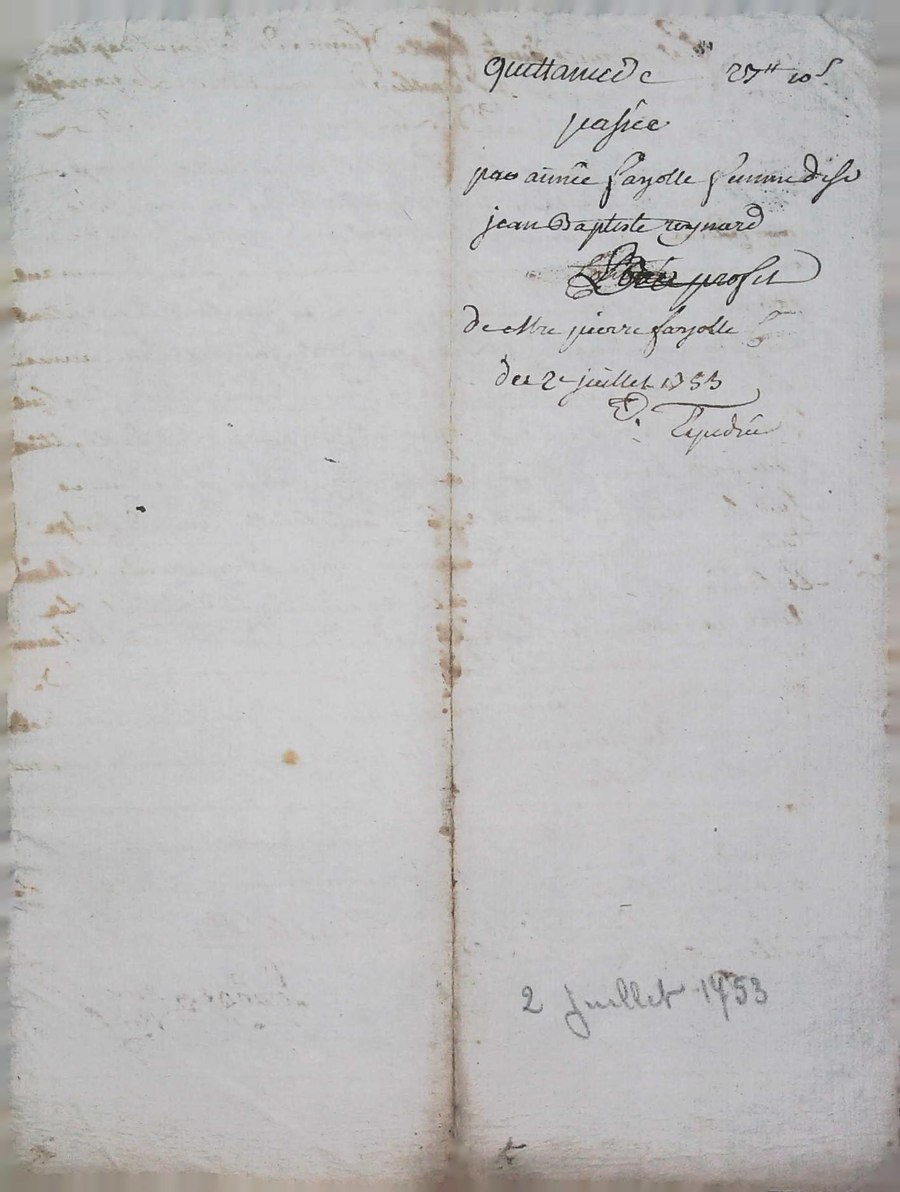 quittance de 27tt 10s
passée
par aimée fayolle femme de sr
jean Baptiste reynard
au profit
de mre pierre fayolle
du 2e juillet 1753
Expediée
2 Juillet 1753